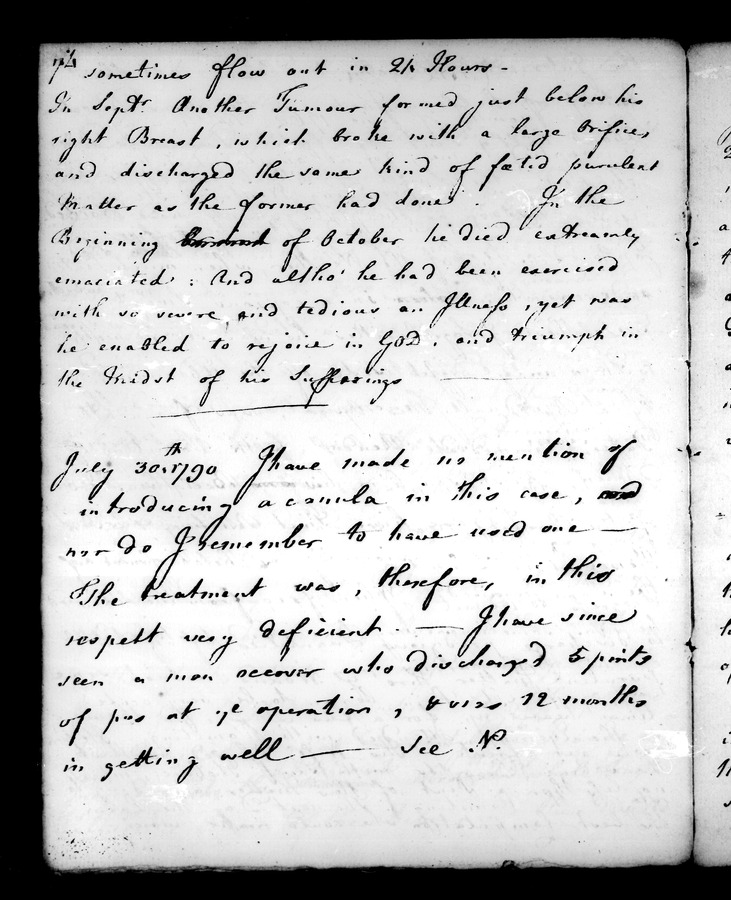 sometimes flow out in 24 Hours -
In Septr. Another Tumour formed just below his
right Breast, which broke with a large Orifice,
and discharged the same kind of fœtid purulent
Matter as the former had done. In the
Beginning of October he died extreamly
emaciated: And altho' he had been exercised
with so severe, and tedious an Illness, yet was
he enabled to rejoice in GOD, and triumph in
the Midst of his Sufferings
July 30th 1790 I have made no mention of
introducing a canula in this case,
nor do I remember to have used one —
The treatment was, therefore, in this
respect very deficient. — I have since
seen a man recover who discharged 5 pints
of pus at ye operation, & was 12 months
in getting well — See No.